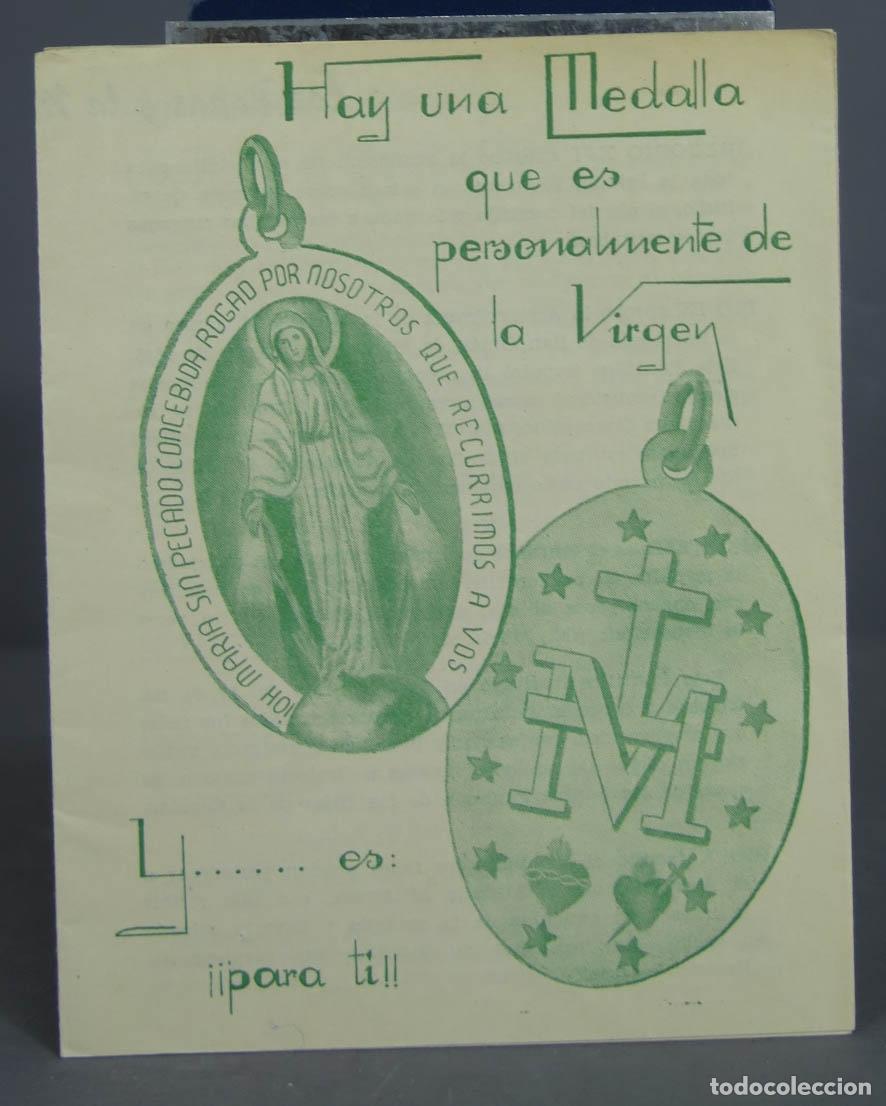 Hay una Medalla
que es
personalmente de
la Virgen
¡OH MARIA SIN PECADO CONCEBIDA ROGAD POR NOSOTROS QUE RECURRIMOS A VOS
M
Y...... es:
¡¡para ti!!
todocoleccion